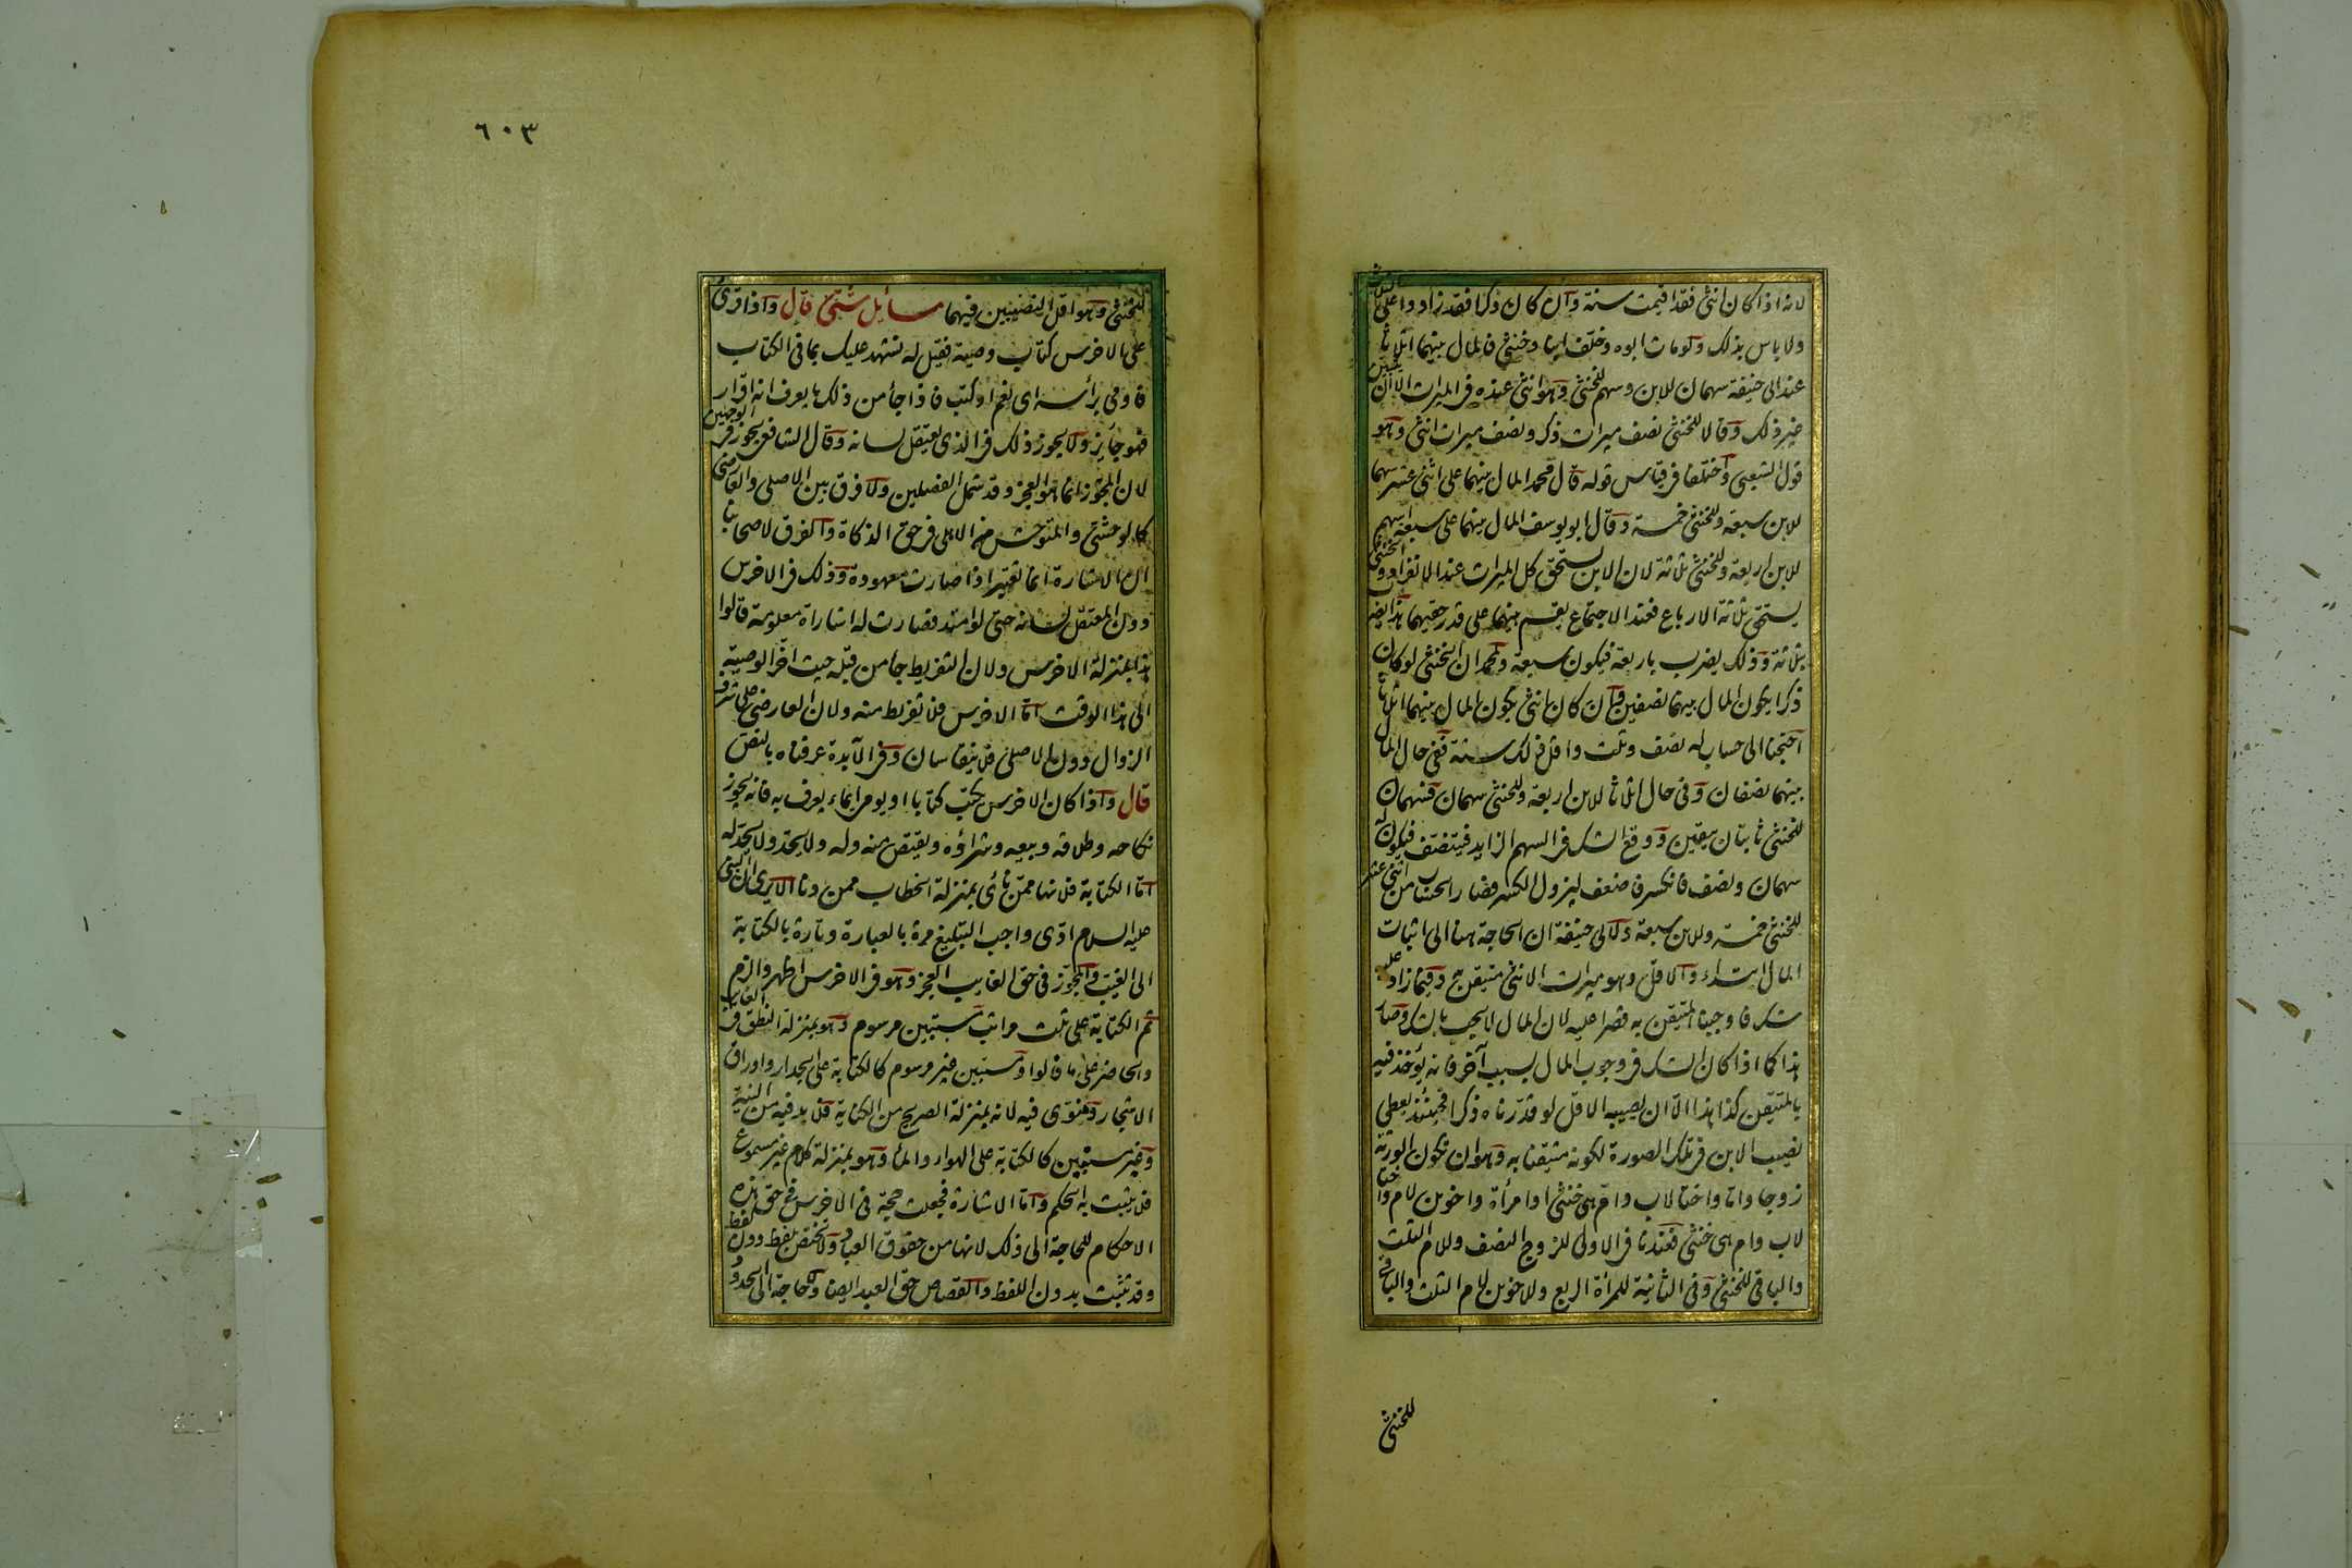 لانه اذا كان انثى فقد اقيمت سنة وان كان ذكرا فقد زادوا على الثلث
ولا باس بذلك ولو مات ابوه وخلف ابنا وخنثى فالمال بينهما اثلاثا
عند ابى حنيفة سهمان للابن وسهم للخنثى وهو انثى عنده فى الميراث الا ان يتبين
غير ذلك وقالا للخنثى نصف ميراث ذكر ونصف ميراث انثى وهو
قول الشعبى واختلفا فى قياس قوله قال محمد المال بينهما على اثنى عشر سهما
للابن سبعة وللخنثى خمسة وقال ابو يوسف المال بينهما على سبعة اسهم
للابن اربعة وللخنثى ثلاثة لان الابن يستحق كل الميراث عند الانفراد والخنثى
يستحق ثلاثة الارباع فعند الاجتماع يقسم بينهما على قدر حقيهما هذا يضرب
بثلاثة وذلك يضرب باربعة فيكون سبعة ولمحمد ان الخنثى لو كان
ذكرا يكون المال بينهما نصفين وان كان انثى يكون المال بينهما اثلاثا
احتجنا الى حساب له نصف وثلث واقل ذلك ستة ففى حال المال
بينهما نصفان وفى حال اثلاثا للابن اربعة وللخنثى سهمان فسهمان
للخنثى ثابتان بيقين ووقع الشك فى السهم الزايد فيتنصف فيكون له
سهمان ونصف فانكسر فاضعف ليزول الكسر فصار الحساب من اثنى عشر
للخنثى خمسة وللابن سبعة ولابى حنيفة ان الحاجة هنا الى اثبات
المال ابتداء والاقل وهو ميراث الانثى متيقن به وفيما زاد عليه
شك فاوجبنا المتيقن به قصرا عليه لان المال لا يجب بالشك وصار
هذا كما اذا كان الشك فى وجوب المال بسبب آخر فانه يؤخذ فيه
بالمتيقن كذا هذا الا ان يصيبه الاقل لو قدرناه ذكرا فحينئذ يعطى
نصيب الابن فى تلك الصورة لكونه متيقنا به وهو ان تكون الورثة
زوجا واما واختا لاب وام هى خنثى او امرأة واخوين لام واختا
لاب وام هى خنثى فعندنا فى الاولى للزوج النصف وللام الثلث
والباقى للخنثى وفى الثانية للمرأة الربع وللاخوين لام الثلث والباقى
للخنثى
٦٠٣
للخنثى وهو اقل النصيبين فيهما مسائل شتى قال واذا قرئ
على الاخرس كتاب وصية فقيل له نشهد عليك بما فى الكتاب
فاومى برأسه اى نعم او كتب فاذا جأ من ذلك ما يعرف انه اقرار
فهو جايز ولا يجوز ذلك فى الذى يعتقل لسانه وقال الشافعى يجوز فى الوجهين
لان المجوز انما هو العجز وقد شمل الفصلين ولا فرق بين الاصلى والعارضى
كالوحشى والمتوحش من الاهلى فى حق الذكاة والفرق لاصحابنا
ان الاشارة انما تعتبر اذا صارت معهودة وذلك فى الاخرس
دون المعتقل لسانه حتى لو امتد فصارت له اشاراة معلومة قالوا
هذا بمنزلة الاخرس ولان التفريط جا من قبله حيث اخر الوصية
الى هذا الوقت اما الاخرس فلا تفريط منه ولان العارضى على شرف
الزوال دون الاصلى فلا ينقاسان وفى الآبدة عرفناه بالنص
قال واذا كان الاخرس يكتب كتابا او يومى ايماء يعرف به فانه يجوز
نكاحه وطلاقه وبيعه وشراؤه ويقتص منه وله ولا يحد ولا يحد له
اما الكتابة فلانها ممن نأى بمنزلة الخطاب ممن دنا الا يرى ان النبى
عليه السلام ادى واجب التبليغ مرة بالعبارة وتارة بالكتابة
الى الغيب والمجوز فى حق الغايب العجز وهو فى الاخرس اظهر والزم
ثم الكتابة على ثلث مراتب مستبين مرسوم وهو بمنزلة النطق فى الغايب
والحاضر على ما قالوا ومستبين غير مرسوم كالكتابة على الجدار واوراق
الاشجار وينوى فيه لانه بمنزلة الصريح من الكتابة فلا بد فيه من النية
وغير مستبين كالكتابة على الهواء والمأ وهو بمنزلة كلام غير مسموع
فلا يثبت به الحكم واما الاشارة فجعلت حجة فى الاخرس فى حق هذه
الاحكام للحاجة الى ذلك لانها من حقوق العباد ولا تختص بلفظ دون لفظ
وقد تثبت بدون اللفظ والقصاص حق العبد ايضا ولا حاجة الى الحدود